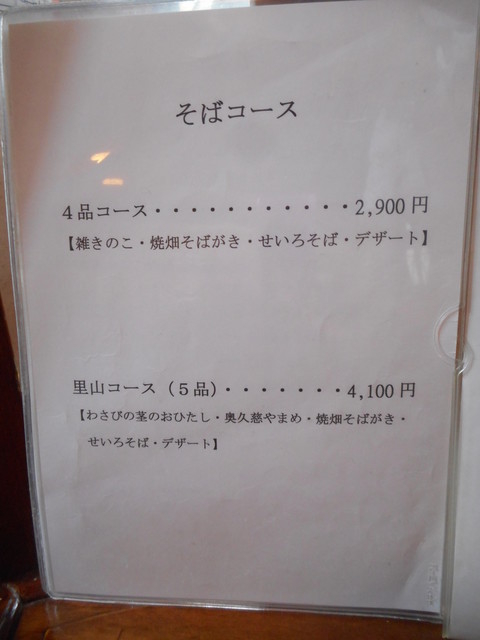 そばコース
4品コース・・・・・・・・・・・2,900円
【雑きのこ・焼畑そばがき・せいろそば・デザート】
里山コース（5品）・・・・・・・4,100円
【わさびの茎のおひたし・奥久慈やまめ・焼畑そばがき・
せいろそば・デザート】